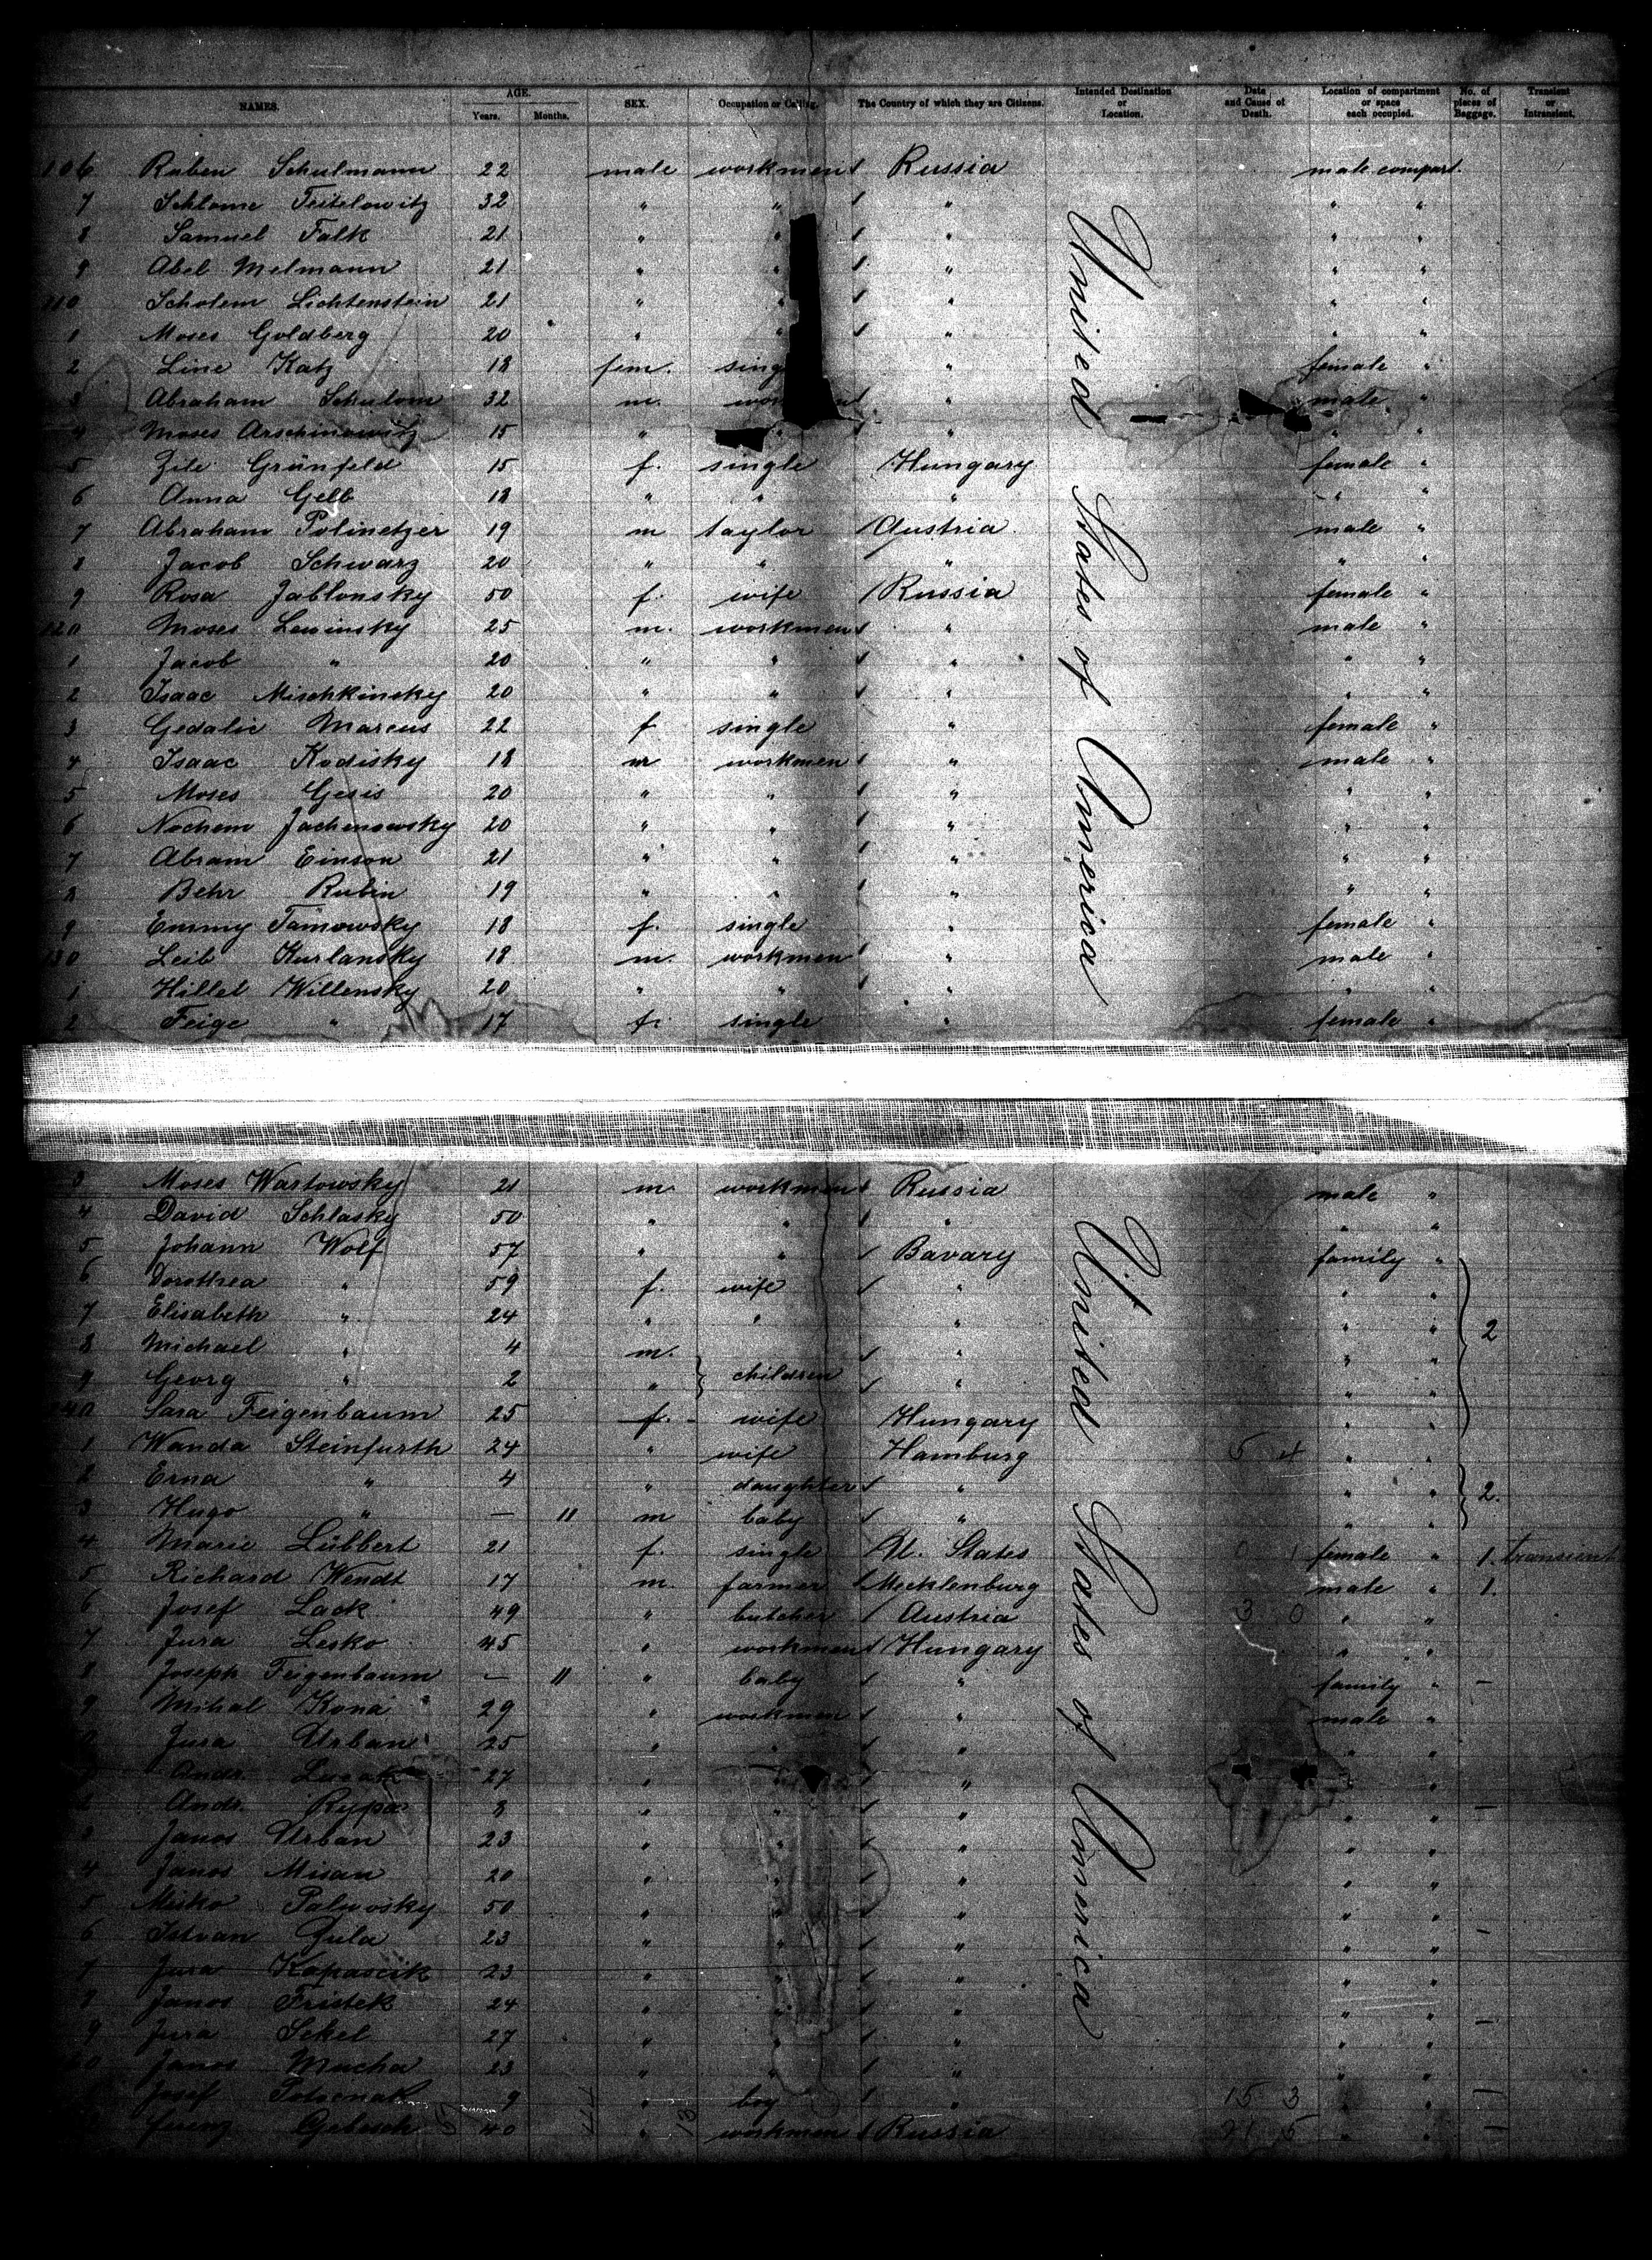 NAMES. AGE. Years. Months. SEX. Occupation or Calling. The Country of which they are Citizens. Intended Destination or Location. Date and Cause of Death. Location of compartment or space each occupied. No. of pieces of Baggage. Transient or Intransient.
106 Ruben Schulmann 22 male workmen Russia male compart.
7 Schlome Teitelowitz 32 " " " " "
8 Samuel Falk 21 " " " " "
9 Abel Melmann 21 " " " "
110 Scholem Lichtenstein 21 " " " " "
1 Moses Goldberg 20 " " " " "
2 Line Katz 18 fem. sing " female "
3 Abraham Schulom 32 m. wor " male "
4 Moses Arschinowitz 15 " " " " "
5 Zile Grünfeld 15 f. single Hungary female "
6 Anna Gelb 18 " " " " "
7 Abraham Polinetzer 19 m taylor Austria male "
8 Jacob Schwarz 20 " " " " "
9 Rosa Jablonsky 50 f. wife Russia female "
120 Moses Lewinsky 25 m. workmen " male "
1 Jacob " 20 " " " " "
2 Isaac Mischkinsky 20 " " " " "
3 Gedalie Marcus 22 f single " female "
4 Isaac Kodisky 18 m workmen " male "
5 Moses Gesis 20 " " " " "
6 Nochem Jachenowsky 20 " " " " "
7 Abram Einson 21 " " " " "
8 Behr Rubin 19 " " " " "
9 Emmy Tamowsky 18 f. single " female "
130 Leib Kurlansky 18 m. workmen " male "
1 Hillel Willensky 20 " " " " "
2 Feige " 17 f. single " female "
United States of America
3 Moses Wartowsky 21 m workmen Russia male "
4 David Schlasky 50 " " " " "
5 Johann Wolf 57 " " Bavary family "
6 Dorothea " 59 f. wife " " "
7 Elisabeth " 24 " " " " " 2
8 Michael " 4 m. " " "
9 Georg " 2 " children " " "
140 Sara Feigenbaum 25 f. wife Hungary " "
1 Wanda Steinfurth 24 " wife Hamburg 5 4 " "
2 Erna " 4 " daughter " " " 2.
3 Hugo " — 11 m baby " " "
4 Marie Lübbert 21 f. single U. States 0 1 female " 1. transient
5 Richard Wendt 17 m. farmer Mecklenburg male " 1.
6 Josef Lack 49 " butcher Austria 3 0 " "
7 Jura Lesko 45 " workmen Hungary " "
8 Joseph Feigenbaum — 11 " baby " family " —
9 Mihal Kona 29 " workmen " male "
0 Jura Urban 25 " " " " "
Andr. 27 " " " " "
2 Andr. Rypa 8 " " " " " —
3 Janos Urban 23 " " " " "
4 Janos Misan 20 " " " " "
5 Misko Palwosky 50 " " " " "
6 Istvan Gula 23 " " " " " —
7 Jura Kapascik 23 " " " " "
8 Janos Fristek 24 " " " " "
9 Jura Sekel 27 " " " " " —
0 Janos Mucha 23 " " " " "
Josef 9 " boy " 15 3 " "
40 " workmen Russia 21 5 " "
United States of America